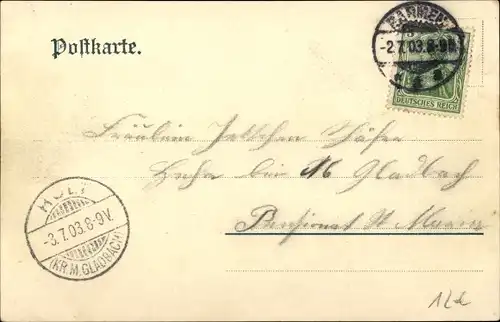 Postkarte.
BARMEN
-2.7.03.8-9N.
DEUTSCHES REICH
Fräulein Jettchen
bei M Gladbach
Pensionat St Maria
HOLT
-3.7.03.8-9V.
(KR.M.GLADBACH)